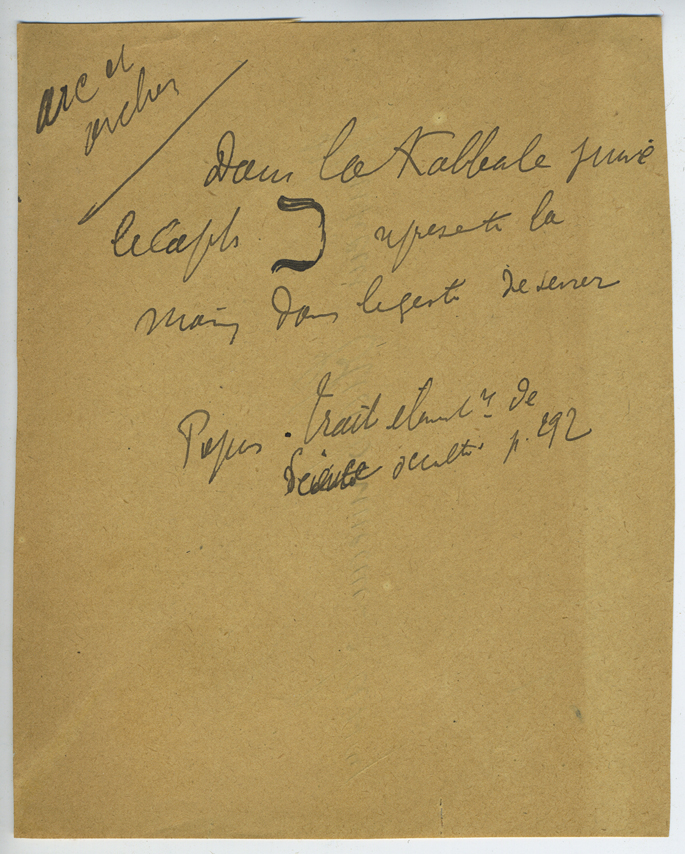 arc et
archer
Dans la Kabbale juive
le Caph כ représente la
main dans le geste de serrer
Papus. Traité élément.re de
Science occulte p. 292